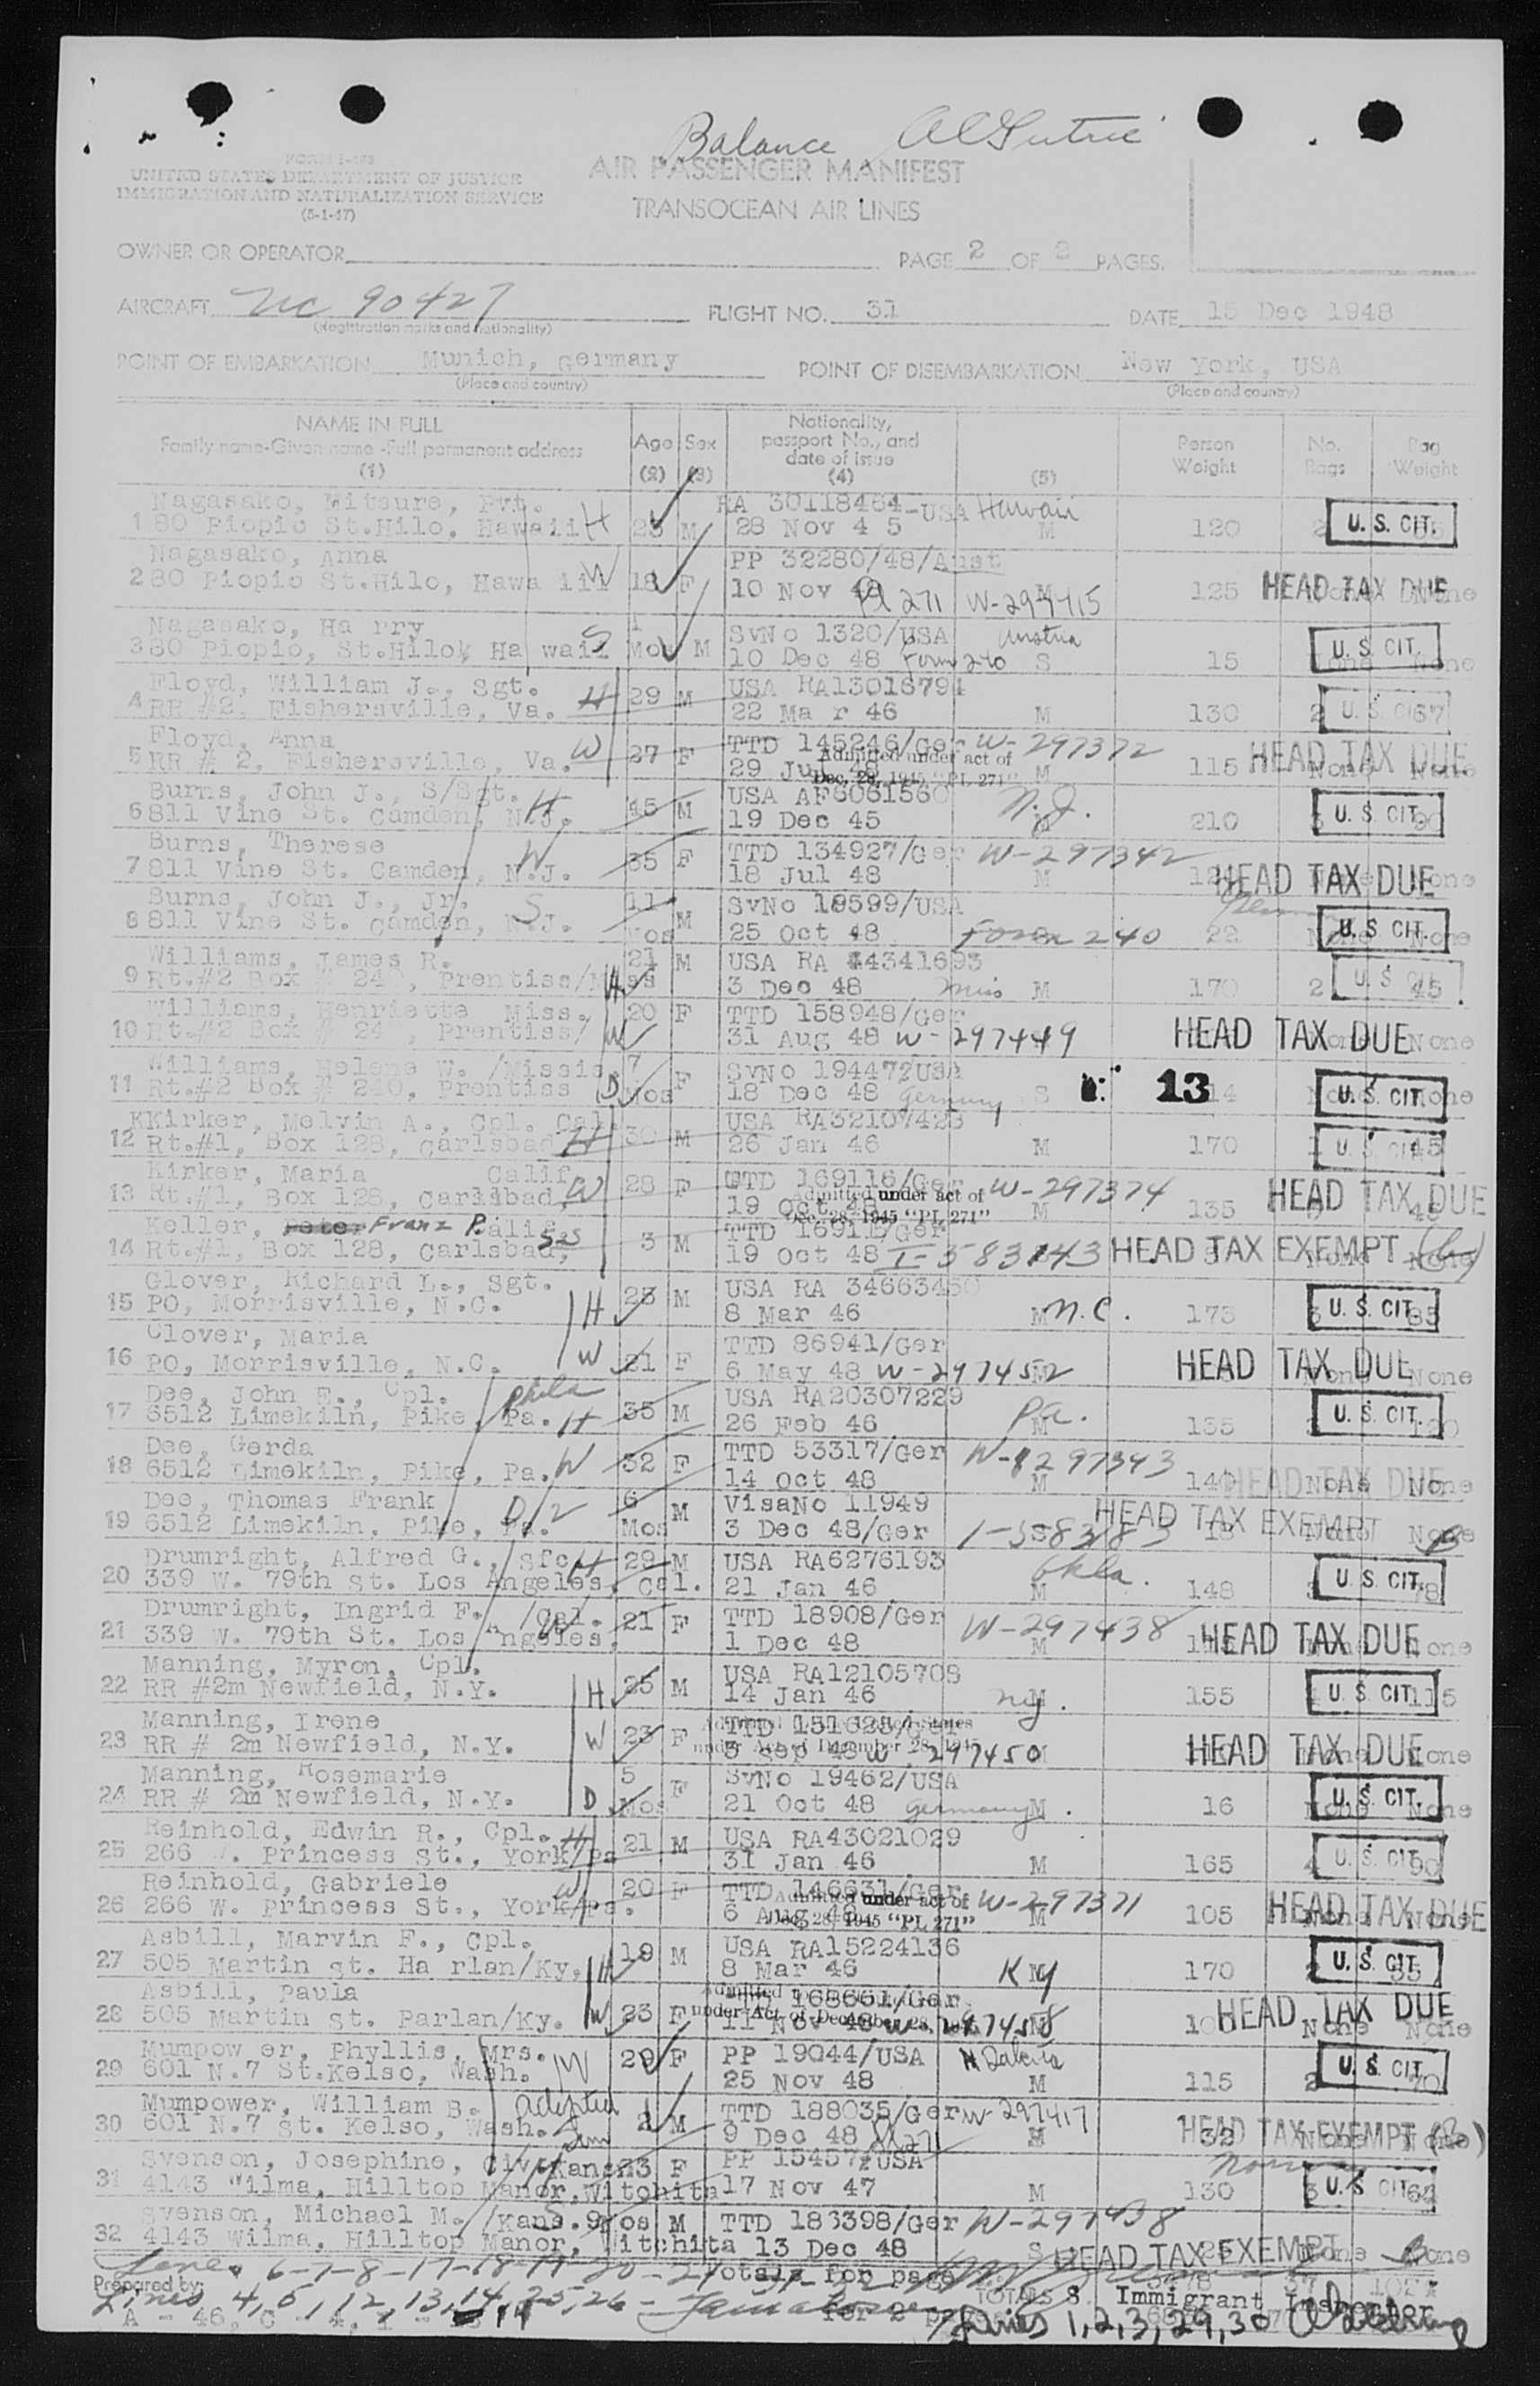 Balance
FORM I-466
UNITED STATES DEPARTMENT OF JUSTICE
IMMIGRATION AND NATURALIZATION SERVICE
(5-1-47)
AIR PASSENGER MANIFEST
TRANSOCEAN AIR LINES
OWNER OR OPERATOR
PAGE 2 OF 2 PAGES.
AIRCRAFT NC 90427
(Registration marks and nationality)
FLIGHT NO. 31
DATE 15 Dec 1948
POINT OF EMBARKATION Munich, Germany
(Place and country)
POINT OF DISEMBARKATION New York, USA
(Place and country)
NAME IN FULL
Family name-Given name-Full permanent address
(1)
Age
(2)
Sex
(3)
Nationality, passport No., and date of issue
(4)
(5)
Person Weight
No. Bags
Bag Weight
Nagasako, Mitsure, Pvt. RA 30118464-USA Hawaii
1 80 Piopio St.Hilo, Hawaii H M 28 Nov 4 5 M 120 2 U. S. CIT.
Nagasako, Anna PP 32280/48/Aust
2 80 Piopio St.Hilo, Hawa iii W 18 F 10 Nov 48 Pl 271 W-297415 M 125 HEAD TAX DUE None
Nagasako, Ha rry 1 SvNo 1320/USA Austria
3 80 Piopio, St.Hilo, Ha waii S Mos M 10 Dec 48 Form 240 S 15 U. S. CIT. None
Floyd, William J., Sgt. USA RA13016794
4 RR #2, Fishersville, Va. H 29 M 22 Ma r 46 M 130 2 U. S. CIT. 67
Floyd, Anna TTD 145246/Ger W-297372
5 RR # 2, Fishersville, Va. W 27 F 29 Jul 48 Admitted under act of Dec. 28, 1945 "PL 271" M 115 HEAD TAX DUE None
Burns, John J., S/Sgt. USA AF6061560
6 811 Vine St. Camden, N.J. H 45 M 19 Dec 45 N.J. 210 3 U. S. CIT. 90
Burns, Therese TTD 134927/Ger W-297342
7 811 Vine St. Camden, N.J. W 35 F 18 Jul 48 M HEAD TAX DUE None
Burns, John J., Jr. 11 SvNo 18599/USA
8 811 Vine St. Camden, N.J. S Mos M 25 Oct 48 Form 240 22 None U. S. CIT. None
Williams, James R. 21 M USA RA 44341693
9 Rt.#2 Box # 240, Prentiss/Miss H 3 Dec 48 Miss M 170 2 U. S. CIT. 45
Williams, Henriette Miss. 20 F TTD 158948/Ger
10 Rt.#2 Box # 24 , Prentiss/ W 31 Aug 48 W-297449 HEAD TAX DUE None
Williams, Helene W. /Missis. 7 F SvNo 19447/USA
11 Rt.#2 Box # 240, Prentiss D Mos 18 Dec 48 Germany S 13 14 None U. S. CIT. None
KKirker, Melvin A., Cpl. Cal. USA RA32107423
12 Rt.#1, Box 128, Carlsbad H 30 M 26 Jan 46 M 170 1 U. S. CIT. 45
Kirker, Maria Calif. TTD 169116/Ger W-297374
13 Rt.#1, Box 128, Carlsbad, W 28 F 19 Oct 48 Admitted under act of Dec. 28, 1945 "PL 271" M 135 HEAD TAX DUE 45
Keller, Peter Franz P. Calif. TTD 16911/Ger
14 Rt.#1, Box 128, Carlsbad, 3 M 19 Oct 48 I-583143 HEAD TAX EXEMPT None
Glover, Richard L., Sgt. USA RA 34663450
15 PO, Morrisville, N.C. H 25 M 8 Mar 46 M N.C. 175 3 U. S. CIT. 85
Clover, Maria TTD 86941/Ger
16 PO, Morrisville, N.C. W 21 F 6 May 48 W-297452 M HEAD TAX DUE None
Dee, John T., Cpl. Phila USA RA20307229
17 6512 Limekiln, Pike, Pa. H 35 M 26 Feb 46 Pa. M 135 U. S. CIT.
Dee, Gerda TTD 53317/Ger W-297343
18 6512 Limekiln, Pike, Pa. W 32 F 14 Oct 48 M 140 HEAD TAX DUE None None
Dee, Thomas Frank 6 VisaNo 11949
19 6512 Limekiln, Pike, Pa. Mos M 3 Dec 48/Ger I-583183 S 18 HEAD TAX EXEMPT None None
Drumright, Alfred G., Sfc H 29 M USA RA6276193 Okla.
20 339 W. 79th St. Los Angeles, Cal. 21 Jan 46 M 148 U. S. CIT. 78
Drumright, Ingrid F. /Cal. 21 F TTD 18908/Ger W-297438
21 339 W. 79th St. Los Angeles, W 1 Dec 48 M HEAD TAX DUE None
Manning, Myron, Cpl. USA RA12105708
22 RR #2m Newfield, N.Y. H 25 M 14 Jan 46 NY. M 155 U. S. CIT. 115
Manning, Irene TTD
23 RR # 2m Newfield, N.Y. W 23 F 3 Sep 48 W 297450 M HEAD TAX DUE None
Manning, Rosemarie 5 F SvNo 19462/USA
24 RR # 2m Newfield, N.Y. D Mos 21 Oct 48 Germany M 16 None U. S. CIT. None
Reinhold, Edwin R., Cpl. H USA RA43021029
25 266 W. Princess St., York/Pa 21 M 31 Jan 46 M 165 4 U. S. CIT. 90
Reinhold, Gabriele W 20 F TTD 146631/Ger W-297371
26 266 W. Princess St., York/Pa. 6 Aug 48 Admitted under act of Dec. 28, 1945 "PL 271" M 105 HEAD TAX DUE None
Asbill, Marvin F., Cpl. USA RA15224136
27 505 Martin St. Ha rlan/Ky. H 19 M 8 Mar 46 Ky M 170 2 U. S. CIT. 55
Asbill, Paula 168661/Ger
28 505 Martin St. Parlan/Ky. W 23 F 11 Nov 48 under Act of December 28, M HEAD TAX DUE None None
Mumpow er, Phyllis, Mrs. W 29 F PP 19044/USA N Dakota
29 601 N.7 St.Kelso, Wash. 25 Nov 48 M 115 2 U. S. CIT. 70
Mumpower, William B. adopted TTD 188035/Ger W-297417
30 601 N.7 St. Kelso, Wash. Son 2 M 9 Dec 48 Pl 271 32 HEAD TAX EXEMPT None
Svenson, Josephine, Civ. Kans. 23 F PP 154577/USA Norway
31 4143 Wilma, Hilltop Manor, Witchita 17 Nov 47 M 130 3 U. S. CIT. 64
Svenson, Michael M. /Kans. 9 Mos M TTD 183398/Ger W-297438
32 4143 Wilma, Hilltop Manor, Witchita 13 Dec 48 S HEAD TAX EXEMPT None None
Lines 6-7-8-17-18-19-20-21 Totals for page
Prepared by:
Lines 4, 5, 12, 13, 14, 25, 26 TOTALS Immigrant Inspector
A - 46, C - 4, for 2 p
Lines 1, 2, 3, 29, 30